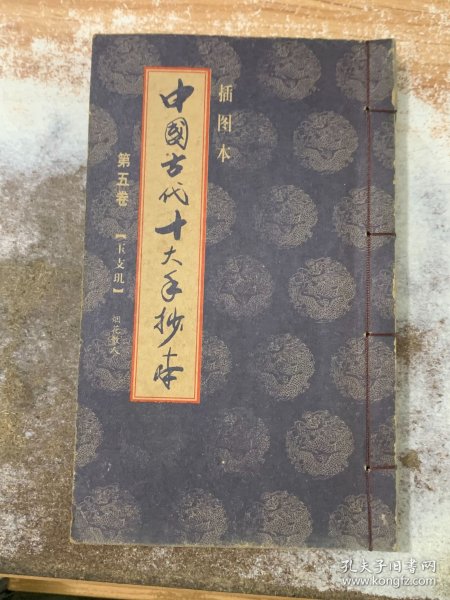 插图本
中國古代十大手抄本
第五卷
【玉支玑】
烟花散人
孔夫子旧书网
www.kongfz.com